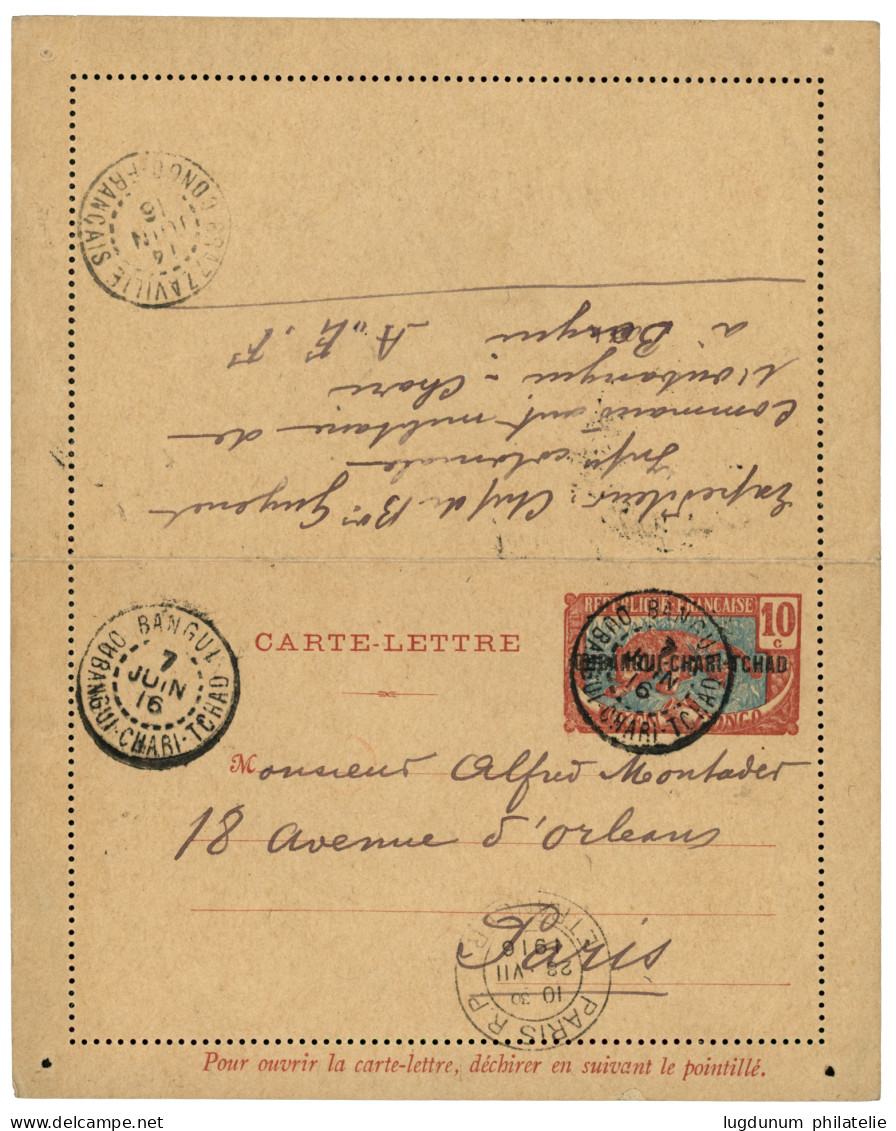 CONGO FRANÇAIS
BRAZZAVILLE
14
JUIN
16
Expéditeur: Chef de Bon Guyenet
Infie coloniale
Commandant militaire de
l'oubangui - Chari
à Bangui A. E. F.
CARTE-LETTRE
REPUBLIQUE FRANÇAISE
10
c
OUBANGUI-CHARI-TCHAD
CONGO
BANGUI
7
JUIN
16
OUBANGUI-CHARI-TCHAD
BANGUI
7
JUIN
16
OUBANGUI-CHARI-TCHAD
Monsieur Alfred Montader
18 avenue d'orleans
Paris
PARIS R.P.
10 30
28 VII
1916
Pour ouvrir la carte-lettre, déchirer en suivant le pointillé.
lugdunum philatelie